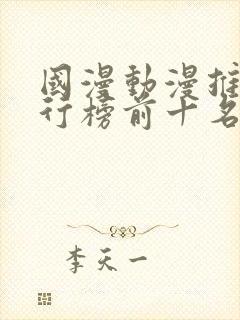 國漫動漫推
行榜前十名
李天一